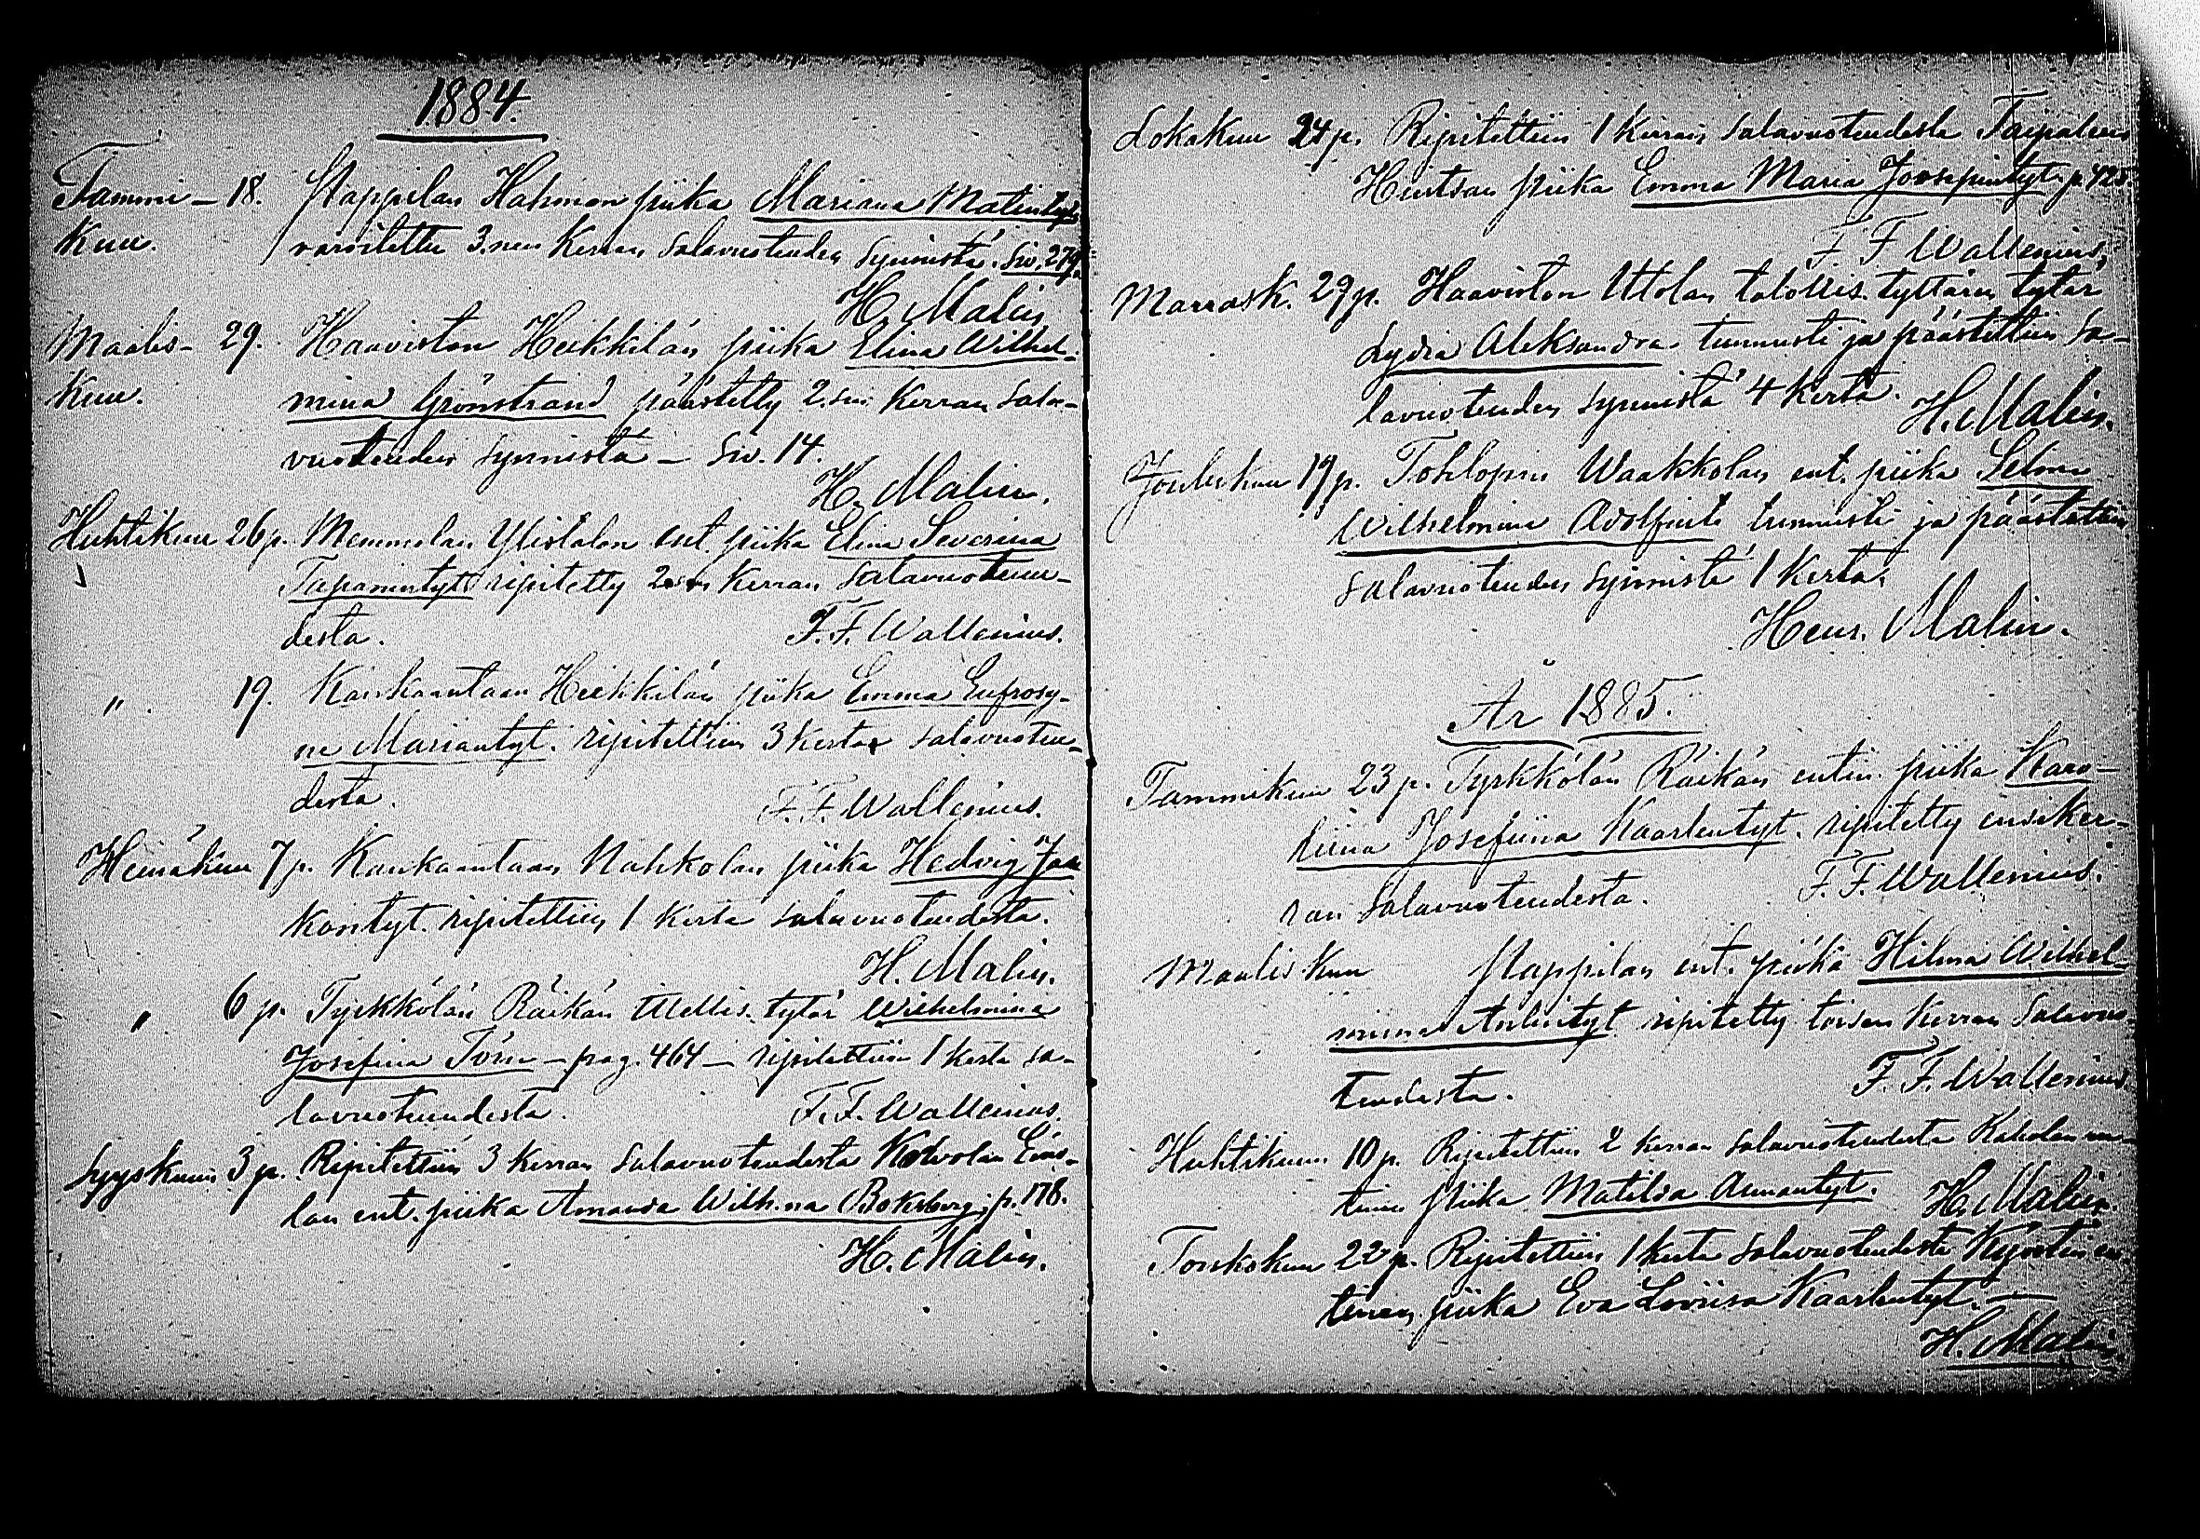 1884.
Tammi- 18. Stappilan Hahmon piika Mariana Matintyt.
kuu. varoitettu 3.nen kerran salavuoteuden synnistä. Siv. 279.
H. Malin
Maalis- 29. Haaviston Heikkilän piika Elina Wilhel-
kuu. mina Grönstrand päästetty 2.sen kerran sala-
vuoteuden synnistä - Siv. 14.
H. Malin.
Huhtikuu 26 p. Memmolan Ylistalon ent. piika Elina Severina
Tapanintyt ripitetty 2.sen kerran salavuoteu-
desta. F. F. Wallenius.
" 19. Kankaantaan Heikkilän piika Emma Eufrosy-
ne Mariantyt. ripitettiin 3 kertaa salavuoteu-
desta. F. F. Wallenius.
Heinäkuu 7 p. Kankaantaan Nahkolan piika Hedvig Jaa
kontyt. ripitettiin 1 kerta salavuoteudesta.
H. Malin.
" 6 p. Tyrkkölän Räikän itellis. tytär Wilhelmina
Josefina Törn - pag. 464 - ripitettiin 1 kerta sa-
lavuoteudesta. F. F. Wallenius.
Syyskuun 3 p. Ripitettiin 3 kerran salavuoteudesta Kotvolan Eins-
lan ent. piika Amanda Wilh.na Boksberg, p. 178.
H. Malin.
Lokakuu 24 p. Ripitettiin 1 kerran salavuoteudesta Taipaleen
Huitsan piika Emma Maria Joosepintyt. p. 425.
F. F. Wallenius,
Marrask. 29 p. Haaviston Uotolan talollis. tyttären tytär
Lydia Aleksandra tunnusti ja päästettiin sa-
lavuoteuden synnistä 4 kerta. H. Malin.
Joulukuu 19 p. Tohlopin Waakkolan ent. piika Selma
Wilhelmina Adolfint. tunnusti ja päästettiin
salavuoteuden synnistä 1 kerta.
Henr. Malin.
År 1885.
Tammikuu 23 p. Tyrkkölän Räikän entin. piika Karo-
liina Josefiina Kaarlentyt. ripitetty ensiker-
ran salavuoteudesta. F. F. Wallenius.
Maaliskuu Stappilan ent. piika Hilma Wilhel-
miina Antintyt ripitetty toisen kerran salavuo-
teudesta. F. F. Wallenius.
Huhtikuun 10 p. Ripitettiin 2 kerran salavuoteudesta Kaholan en-
tinen piika Matilda Amantyt. H. Malin.
Toukokuu 22 p. Ripitettiin 1 kerta salavuoteudesta en-
tinen piika Eva Loviisa Kaarlentyt. -
H. Malin